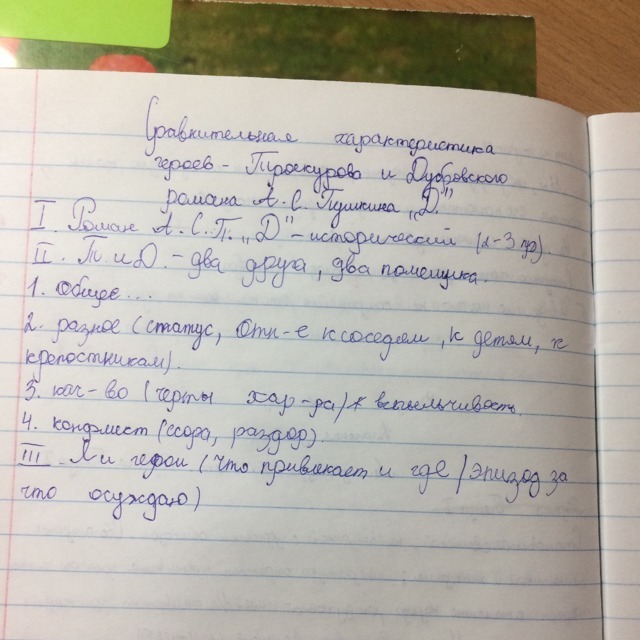 Сравнительная характеристика
героев - Троекурова и Дубровского
романа А. С. Пушкина „Д."
I. Роман А. С. П. „Д" - исторический (2-3 пр).
II. Т. и Д. - два друга, два помещика.
1. Общее...
2. разное (статус, отн-е к соседям, к детям, к
крепостникам).
3. кач-во (черты хар-ра) вспыльчивость.
4. конфликт (ссора, раздор)
III герои (что привлекает и где / эпизод за
что осуждаю)